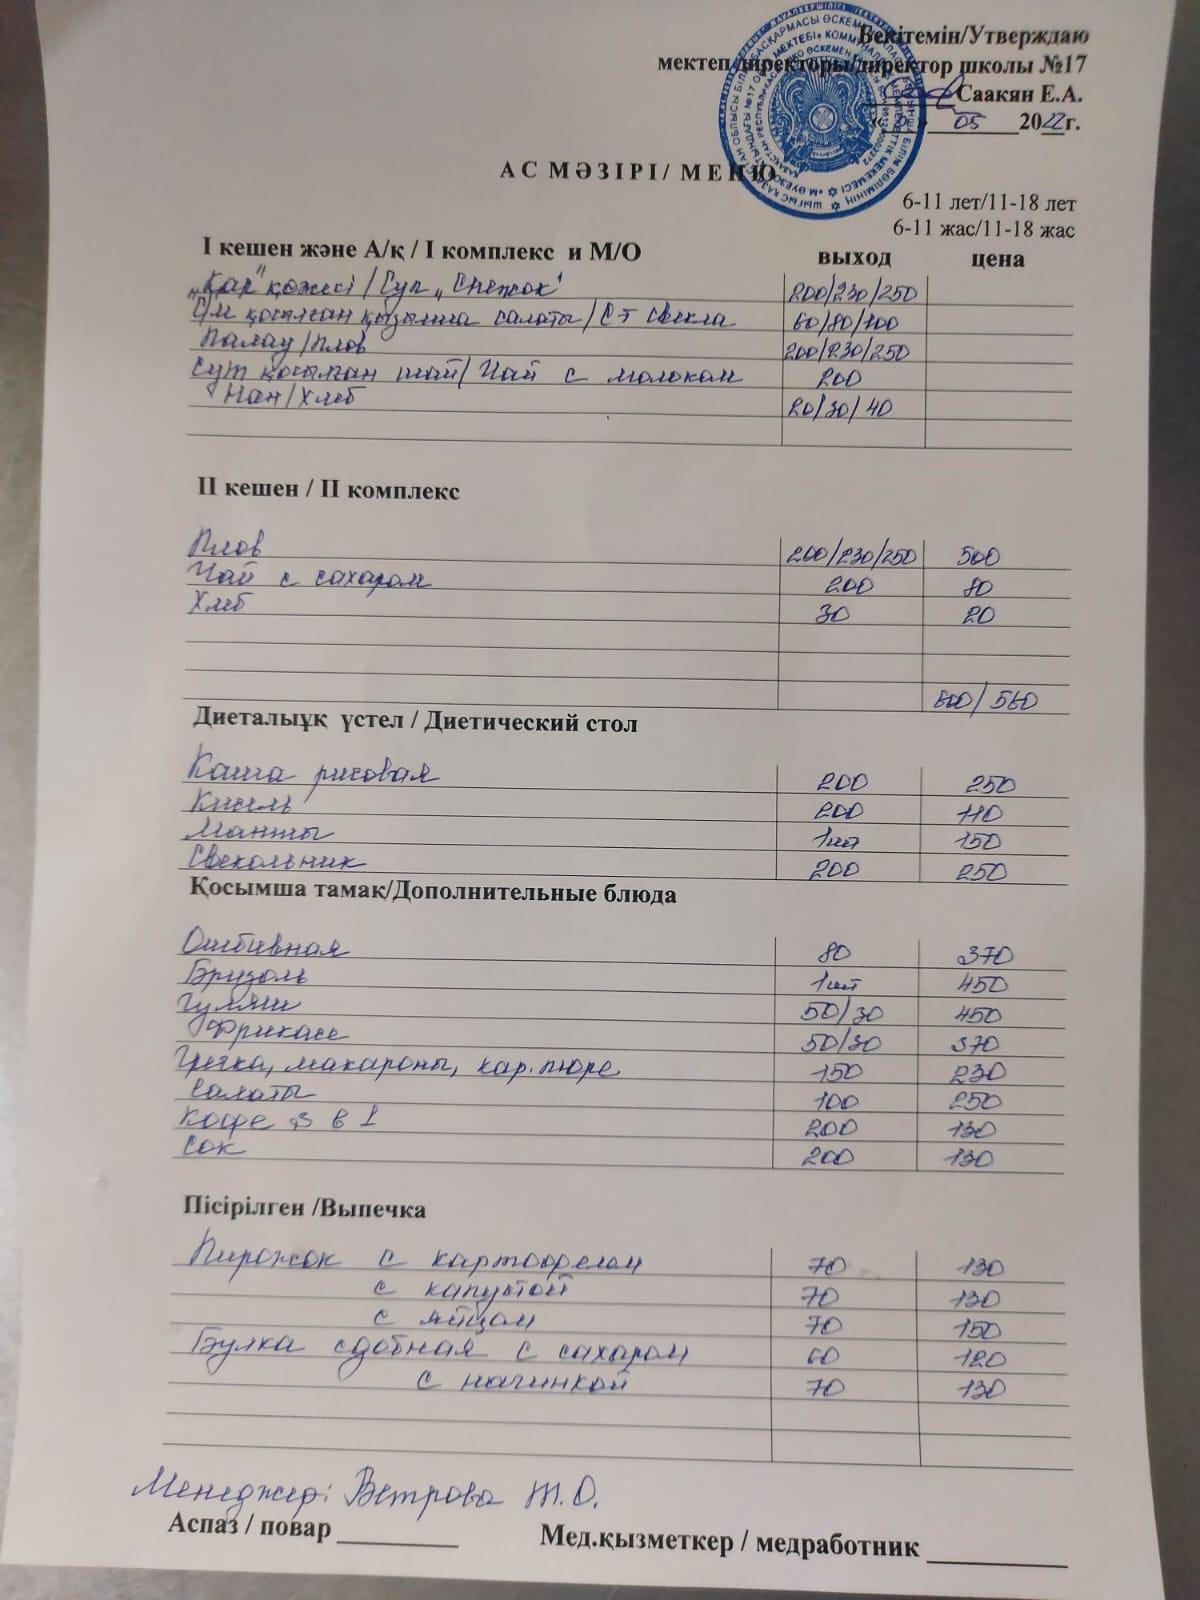 Бекітемін/Утверждаю
мектеп директоры/директор школы №17
Саакян Е.А.
05 2022г.
АС МӘЗІРІ/ МЕНЮ
6-11 лет/11-18 лет
6-11 жас/11-18 жас
І кешен және А/қ / І комплекс и М/О выход цена
„Қар" көжесі / Суп „Снежок" 200/230/250
қосылған қызылша салаты / Свекла 60/80/100
Палау/Плов 200/230/250
Сүт қосылған шай/ Чай с молоком 200
Нан/Хлеб 20/30/40
ІІ кешен / ІІ комплекс
Плов 200/230/250 500
Чай с сахаром 200 80
Хлеб 30 20
600/560
Диеталыұқ үстел / Диетический стол
Каша рисовая 200 250
Кисель 200 110
Манты 1шт 150
Свекольник 200 250
Қосымша тамак/Дополнительные блюда
Отбивная 80 370
Бризоль 1шт 450
Гуляш 50/30 450
Фрикасе 50/30 370
Гречка, макароны, кар. пюре 150 230
Салаты 100 250
Кофе 3 в 1 200 130
Сок 200 130
Пісірілген /Выпечка
Пирожок с картофелем 70 130
с капустой 70 130
с яйцом 70 150
Булка сдобная с сахаром 60 120
с начинкой 70 130
Менеджер: Ветрова Т.О.
Аспаз / повар Мед.қызметкер / медработник